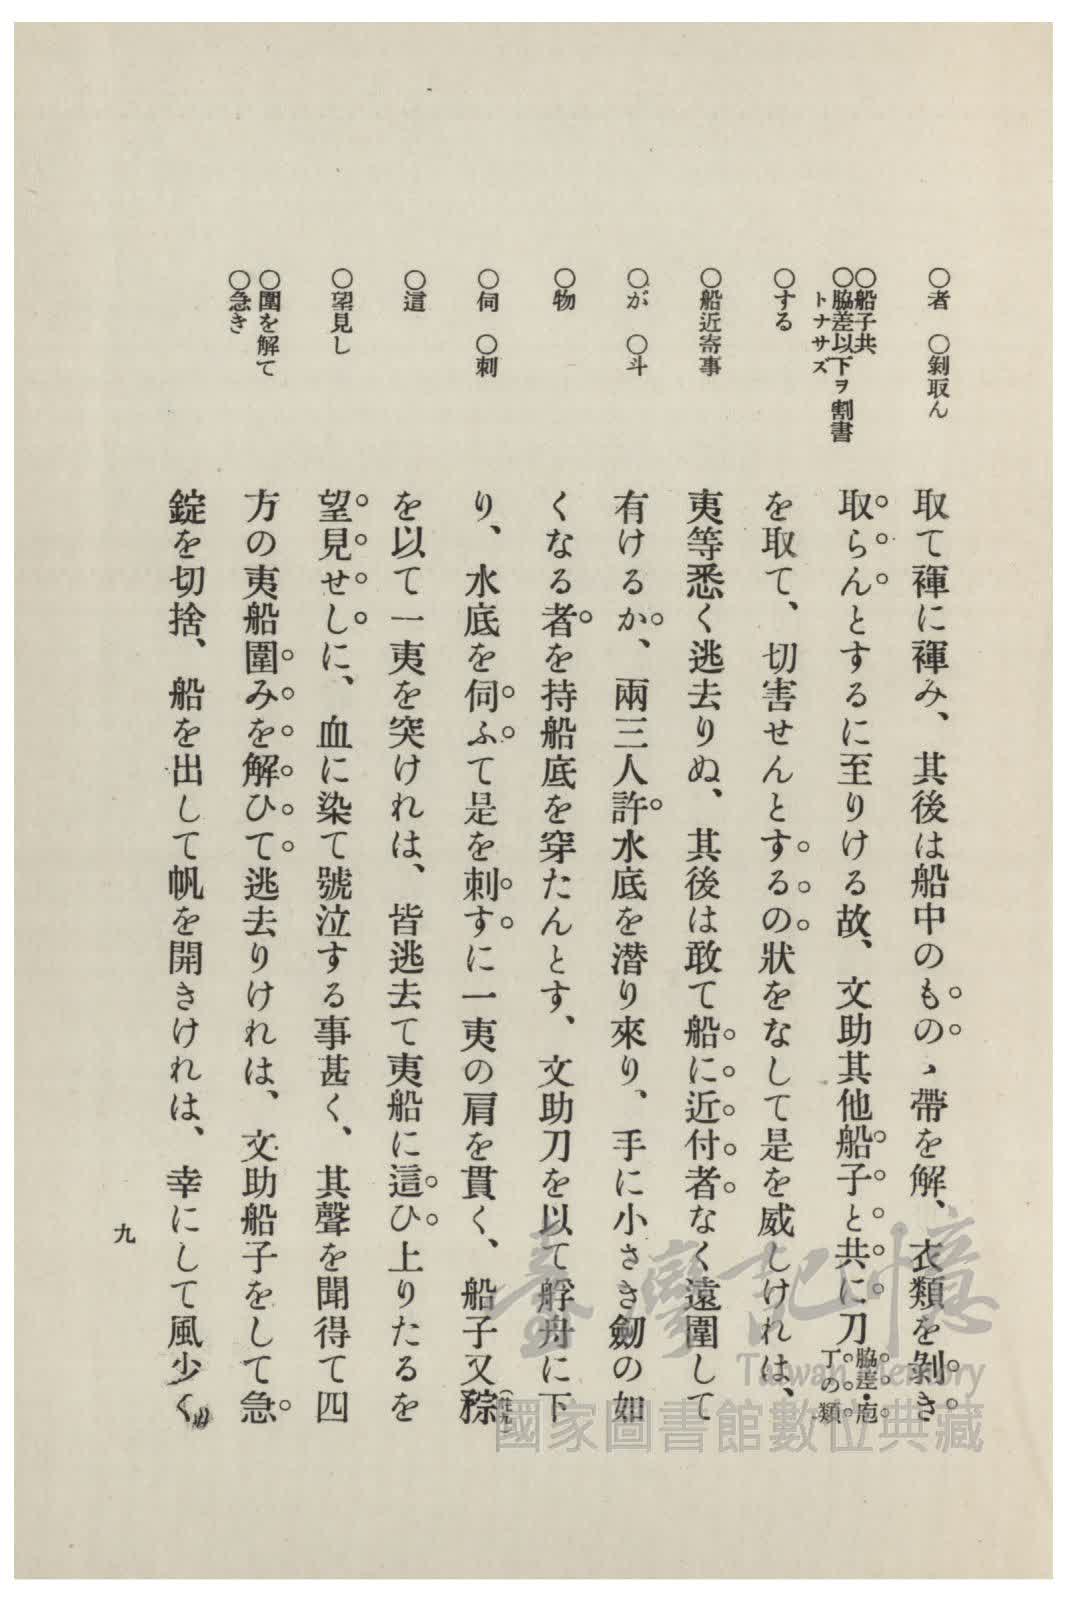 〇者　〇剝取ん
〇船子共
〇脇差以下ヲ割書
トナサズ
〇する
〇船近寄事
〇が　〇斗
〇物
〇伺　〇刺
〇這
〇望見し
〇圍を解て
〇急き
取て褌に褌み、其後は船中のものゝ帶を解、衣類を剝き
取らんとするに至りける故、文助其他船子と共に刀脇差・庖丁の類
を取て、切害せんとするの狀をなして是を威しけれは、
夷等悉く逃去りぬ、其後は敢て船に近付者なく遠圍して
有けるか、兩三人許水底を潜り來り、手に小さき劒の如
くなる者を持船底を穿たんとす、文助刀を以て艀舟に下
り、水底を伺ふて是を刺すに一夷の肩を貫く、船子又
を以て一夷を突けれは、皆逃去て夷船に這ひ上りたるを
望見せしに、血に染て號泣する事甚く、其聲を聞得て四
方の夷船圍みを解ひて逃去りけれは、文助船子をして急
錠を切捨、船を出して帆を開きけれは、幸にして風少く
九
臺灣記憶
Taiwan Memory
國家圖書館數位典藏